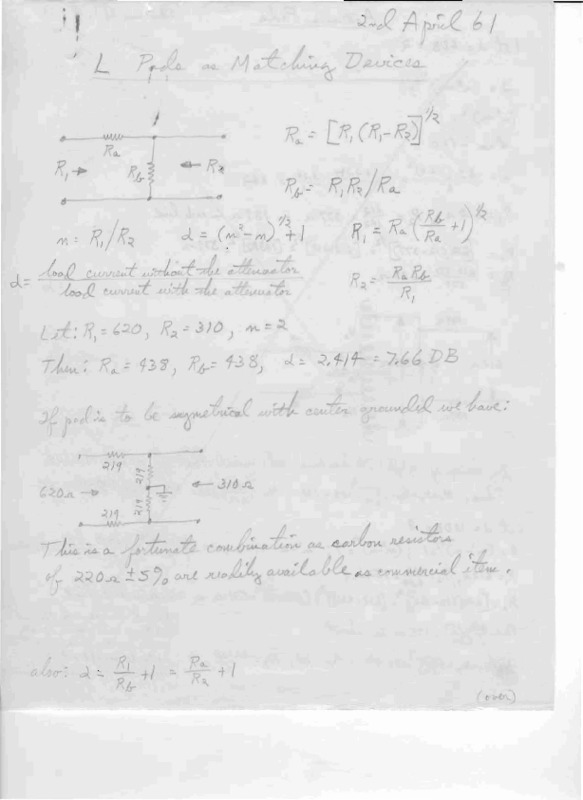 2nd April 61
L Pads as Matching Devices
Ra
R1
Rb
R2
Ra = [R1(R1-R2)]^1/2
Rb = R1R2/Ra
n = R1/R2
α = (n²-n)^1/2+1
R1 = Ra(Rb/Ra+1)^1/2
α = load current without the attenuator / load current with the attenuator
R2 = RaRb/R1
Let: R1 = 620, R2 = 310, n = 2
Then: Ra = 438, Rb = 438, α = 2.414 = 7.66 DB
If pad is to be symetrical with center grounded we have:
219
219
620Ω
310Ω
219
219
This is a fortunate combination as carbon resistors
of 220Ω ±5% are readily available as commercial item.
also: α = R1/Rb +1 = Ra/R2 +1
(over)